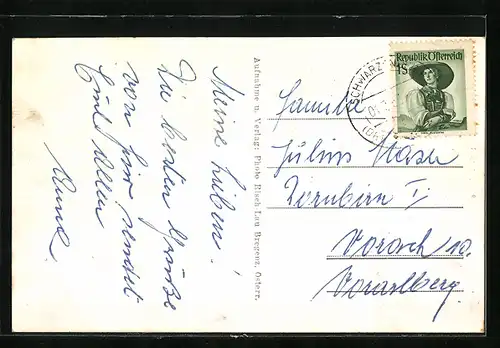 Meine Lieben!
Die besten Grüße
von hier sendet
Euch allen
Aufnahme u. Verlag: Photo Risch-Lau Bregenz, Österr.
Republik Österreich
1S
SCHWARZ
Familie
Julius
Dornbirn I
10.
Vorarlberg.